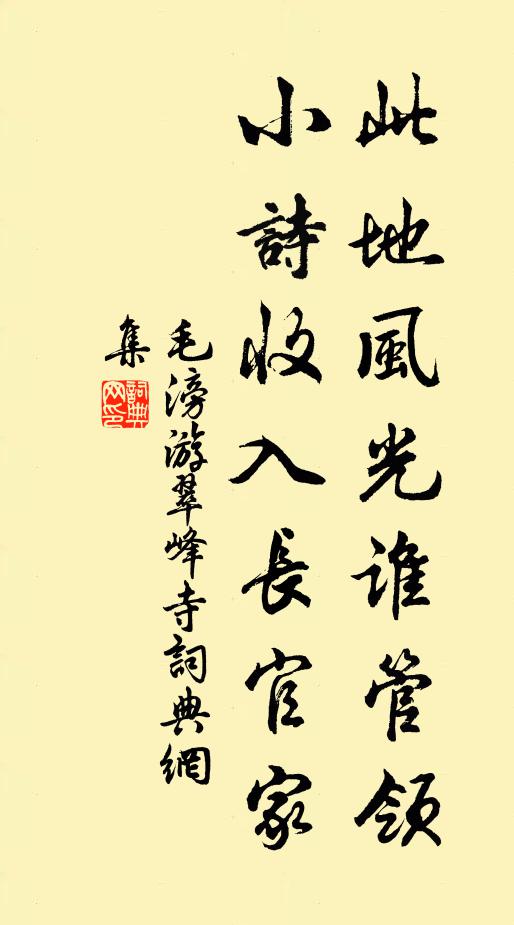 此地風光誰管領
小詩收入長官家
毛滂游翠峰寺詞典網
集
詞典網印